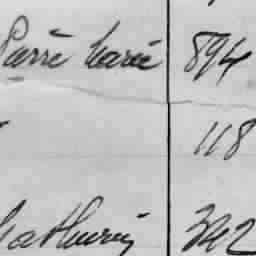 Pierre Marie 894
118
Mathurin 342